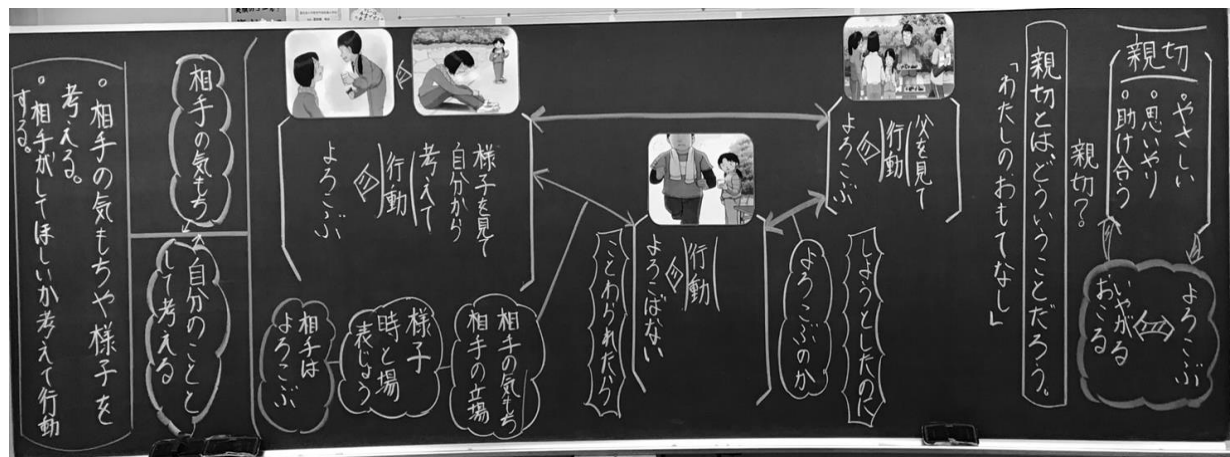 親切
・やさしい
・思いやり
・助け合う
親切?
よろこぶ
いやがる
おこる
親切とは、どういうことだろう。
「わたしのおもてなし」
父を見て
行動
よろこぶ
しようとしたのに
よろこぶのか
行動
よろこばない
ことわられたから
様子を見て
自分から
考えて
行動
よろこぶ
相手の気もち
相手の立場
様子
時と場
表じょう
相手は
よろこぶ
相手の気もち
自分のこととして
考える
・相手の気もちや様子を
考える。
・相手がしてほしいか考えて行動
する。